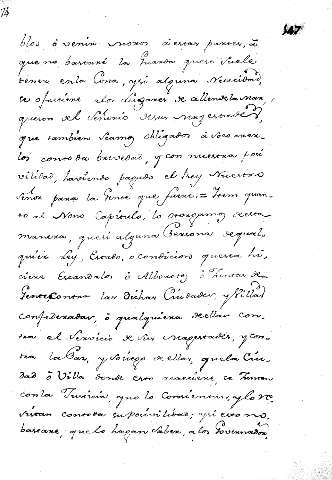 147
blos ó venir Moros á estas partes, á
que no bastaré la Guarda que se suele
tener en la Costa, y si alguna Necesidad
se ofreciere a los Lugares de allende la Mar,
que son del Señorío de sus Magestades,
que tambien seamos obligados á socorrer
los con toda brevedad, y con nuestra posi
vilidad, haviendo pagado el Rey Nuestro
Señor para la Gente que fuere = Item quan
to al Nono Capitulo, lo otorgamos de esta
manera, que si alguna Persona de qual
quier Ley, Estado, ó Condicion que sea hi
ciere Escandalos ó Alborotos ó Juntas de
Gente contra las dichas Ciudades, y Villas
confederadas, ó qualquiera de ellas con
tra el Servicio de Sus Magestades, y con
tra la Paz, y Sosiego de ellas, que la Ciu
dad ó Villa donde esto acaeciere, se Junten
con la Justicia, y no lo Consientan, y lo re
sistan con toda su posivilidad; y si esto no
bastare, que lo hagan Saber, a los Governador